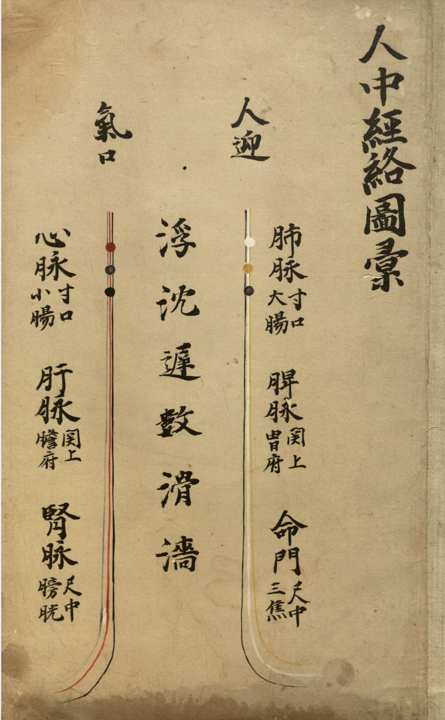 人中經絡圖彙
人迎
肺脉
寸口
大腸
脾脉
関上
胃府
命門
尺中
三焦
浮沈遲數滑濇
氣口
心脉
寸口
小腸
肝脉
関上
膽府
腎脉
尺中
膀胱